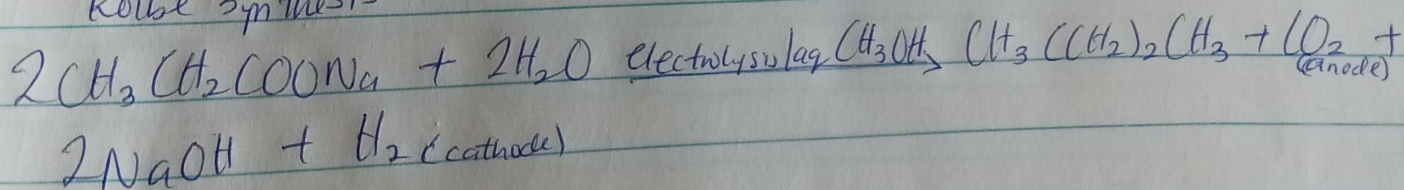 Kolbe Synthesis
2CH₃CH₂COONa + 2H₂O electrolysis/aq CH₃OH → CH₃(CH₂)₂CH₃ + CO₂ +
(anode)
2NaOH + H₂ (cathode)